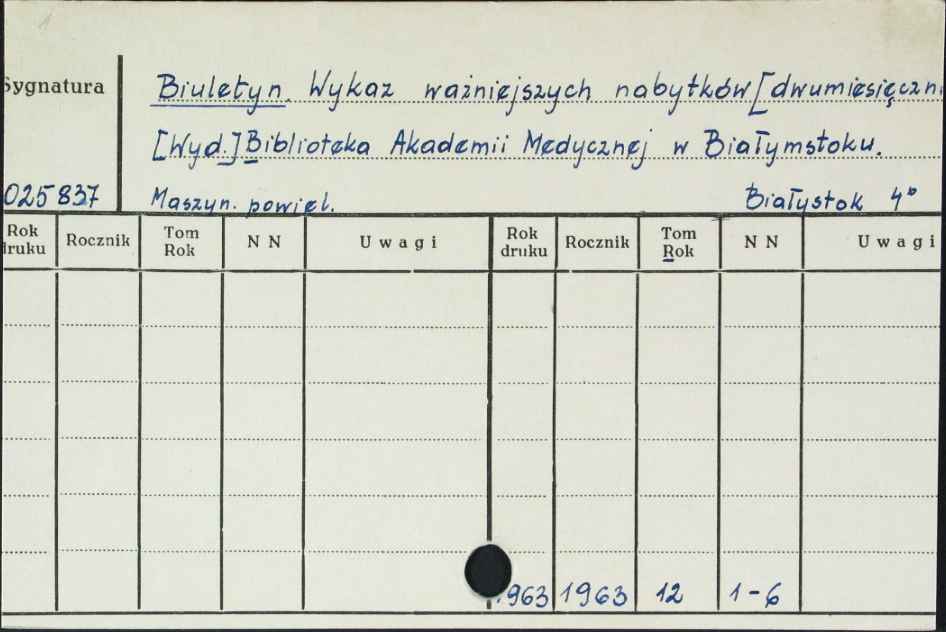 1
Sygnatura
Biuletyn. Wykaz ważniejszych nabytków [dwumiesięczn
[Wyd.] Biblioteka Akademii Medycznej w Białymstoku.
025837 Maszyn. powiel. Białystok 4°
Rok druku Rocznik Tom Rok NN Uwagi Rok druku Rocznik Tom Rok NN Uwagi
963 1963 12 1-6